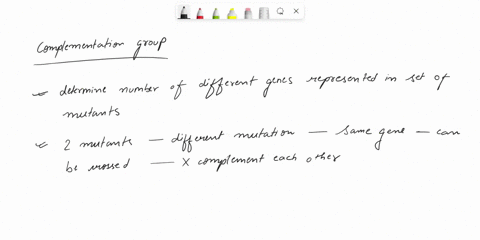 Complementation group
determine number of different genes represented in set of
mutants
2 mutants — different mutation — same gene — can
be crossed — X complement each other